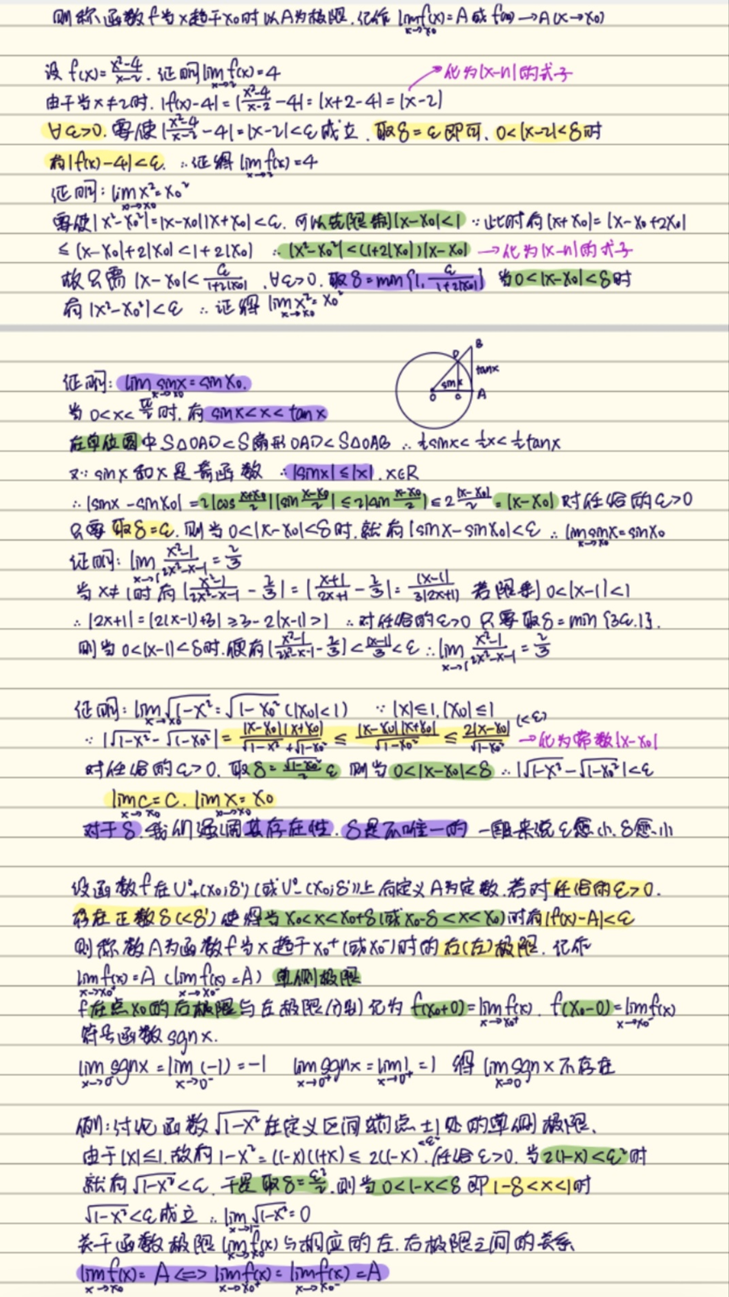 则称函数f当x趋于x₀时以A为极限,记作 lim_{x→x₀} f(x)=A 或 f(x)→A(x→x₀)
设 f(x)=(x²-4)/(x-2). 证明 lim_{x→2} f(x)=4
→化为|x-n|的式子
由于当x≠2时. |f(x)-4|=|(x²-4)/(x-2) -4|=|x+2-4|=|x-2|
∀ε>0. 要使|(x²-4)/(x-2) -4|=|x-2|<ε成立. 取δ=ε即可. 0<|x-2|<δ时
有|f(x)-4|<ε. ∴证得 lim_{x→2} f(x)=4
证明: lim_{x→x₀} x²=x₀²
要使|x²-x₀²|=|x-x₀||x+x₀|<ε. 可以先限制|x-x₀|<1 ∵此时有|x+x₀|=|x-x₀+2x₀|
≤|x-x₀|+2|x₀|<1+2|x₀| ∴|x²-x₀²|<(1+2|x₀|)|x-x₀| →化为|x-n|的式子
故只需|x-x₀|<ε/(1+2|x₀|) .∀ε>0. 取δ=min{1, ε/(1+2|x₀|)} 当0<|x-x₀|<δ时
有|x²-x₀²|<ε ∴证得 lim_{x→x₀} x²=x₀²
证明: lim_{x→x₀} sinx=sinx₀.
D B sinx tanx O C A
当 0<x<π/2时. 有 sinx<x<tanx
在单位圆中 S△OAD<S扇形OAD<S△OAB ∴½sinx<½x<½tanx
又∵ sinx和x是奇函数 ∴|sinx|≤|x|. x∈R
∴|sinx-sinx₀|=2|cos (x+x₀)/2||sin (x-x₀)/2|≤2|sin (x-x₀)/2|≤2 |x-x₀|/2=|x-x₀| 对任给的ε>0
只要取δ=ε. 则当0<|x-x₀|<δ时. 就有|sinx-sinx₀|<ε ∴lim_{x→x₀} sinx=sinx₀
证明: lim_{x→1} (x²-1)/(2x²-x-1)=2/3
当x≠1时有|(x²-1)/(2x²-x-1) - 2/3|=|(x+1)/(2x+1) - 2/3|=|x-1|/(3|2x+1|) 若限制0<|x-1|<1
∴|2x+1|=|2(x-1)+3|≥3-2|x-1|>1 ∴对任给的ε>0 只要取δ=min{3ε,1}.
则当0<|x-1|<δ时. 便有|(x²-1)/(2x²-x-1) - 2/3|<|x-1|/3<ε ∴lim_{x→1} (x²-1)/(2x²-x-1)=2/3
证明: lim_{x→x₀} √(1-x²)=√(1-x₀²) (|x₀|<1) ∵|x|≤1,|x₀|≤1
∵|√(1-x²)-√(1-x₀²)|=|x-x₀||x+x₀|/(√(1-x²)+√(1-x₀²))≤|x-x₀||x+x₀|/√(1-x₀²)≤2|x-x₀|/√(1-x₀²) (<ε) →化为常数|x-x₀|
对任给的ε>0. 取δ=√(1-x₀²)/2 ε 则当0<|x-x₀|<δ ∴|√(1-x²)-√(1-x₀²)|<ε
lim_{x→x₀} c=c. lim_{x→x₀} x=x₀
对于δ.我们强调其存在性. δ是不唯一的 一般来说ε愈小.δ愈小
设函数f在U°₊(x₀;δ')(或U°₋(x₀;δ'))上有定义A为定数. 若对任给的ε>0.
存在正数δ(<δ')使得当x₀<x<x₀+δ(或x₀-δ<x<x₀)时有|f(x)-A|<ε
则称数A为函数f当x趋于x₀⁺(或x₀⁻)时的右(左)极限. 记作
lim_{x→x₀⁺} f(x)=A (lim_{x→x₀⁻} f(x)=A) 单侧极限
f在点x₀的右极限与左极限分别记为 f(x₀+0)=lim_{x→x₀⁺} f(x). f(x₀-0)=lim_{x→x₀⁻} f(x)
符号函数sgnx.
lim_{x→0⁻} sgnx=lim_{x→0⁻} (-1)=-1 lim_{x→0⁺} sgnx=lim_{x→0⁺} 1=1 得 lim_{x→0} sgnx不存在
例:讨论函数√(1-x²)在定义区间端点±1处的单侧极限.
由于|x|≤1.故有 1-x²=(1-x)(1+x)≤2(1-x) <ε². 任给ε>0. 当2(1-x)<ε²时
就有√(1-x²)<ε. 于是取δ=ε²/2. 则当0<1-x<δ即1-δ<x<1时
√(1-x²)<ε成立 ∴lim_{x→1⁻} √(1-x²)=0
关于函数极限lim_{x→x₀} f(x)与相应的左.右极限之间的关系
lim_{x→x₀} f(x)=A⇔lim_{x→x₀⁺} f(x)=lim_{x→x₀⁻} f(x)=A